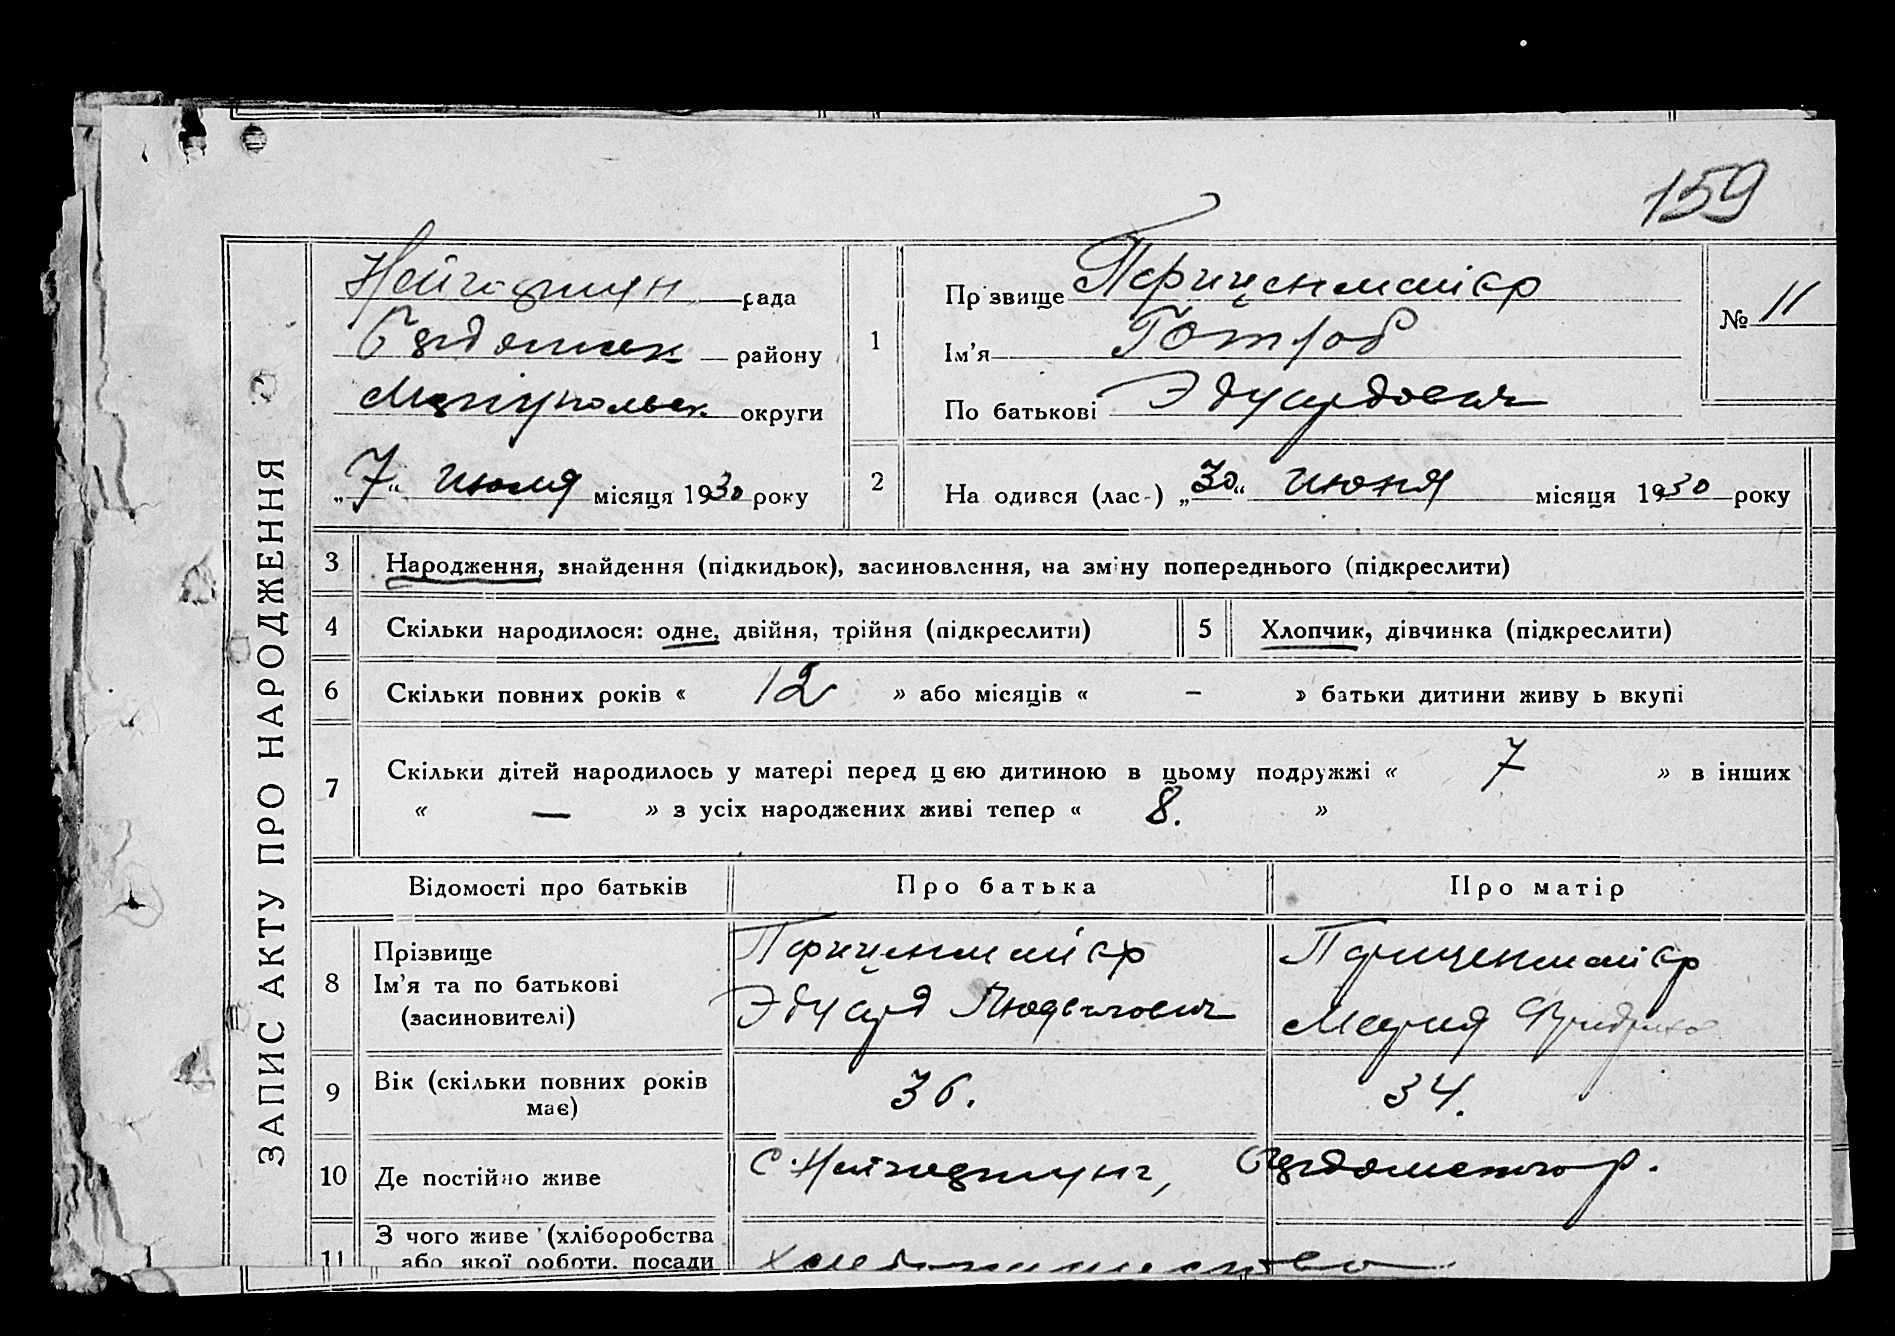 159
ЗАПИС АКТУ ПРО НАРОДЖЕННЯ
рада
району
Маріупольск. округи
„7“ июля місяця 1930 року
1
Прізвище
Ім'я Готлоб
По батькові Эдуардович
№ 11
2
На одився (лас-) „30“ июня місяця 1930 року
3 Народження, знайдення (підкидьок), засиновлення, на зміну попереднього (підкреслити)
4 Скільки народилося: одне, двійня, трійня (підкреслити)
5 Хлопчик, дівчинка (підкреслити)
6 Скільки повних років « 12 » або місяців « – » батьки дитини живу ь вкупі
7 Скільки дітей народилось у матері перед цією дитиною в цьому подружжі « 7 » в інших
« — » з усіх народжених живі тепер « 8. »
Відомості про батьків Про батька Про матір
8 Прізвище
Ім'я та по батькові Эдуард Людвигович Мария
(засиновителі)
9 Вік (скільки повних років має) 36. 34.
10 Де постійно живе с.
11 З чого живе (хліборобства
або якої роботи, посади